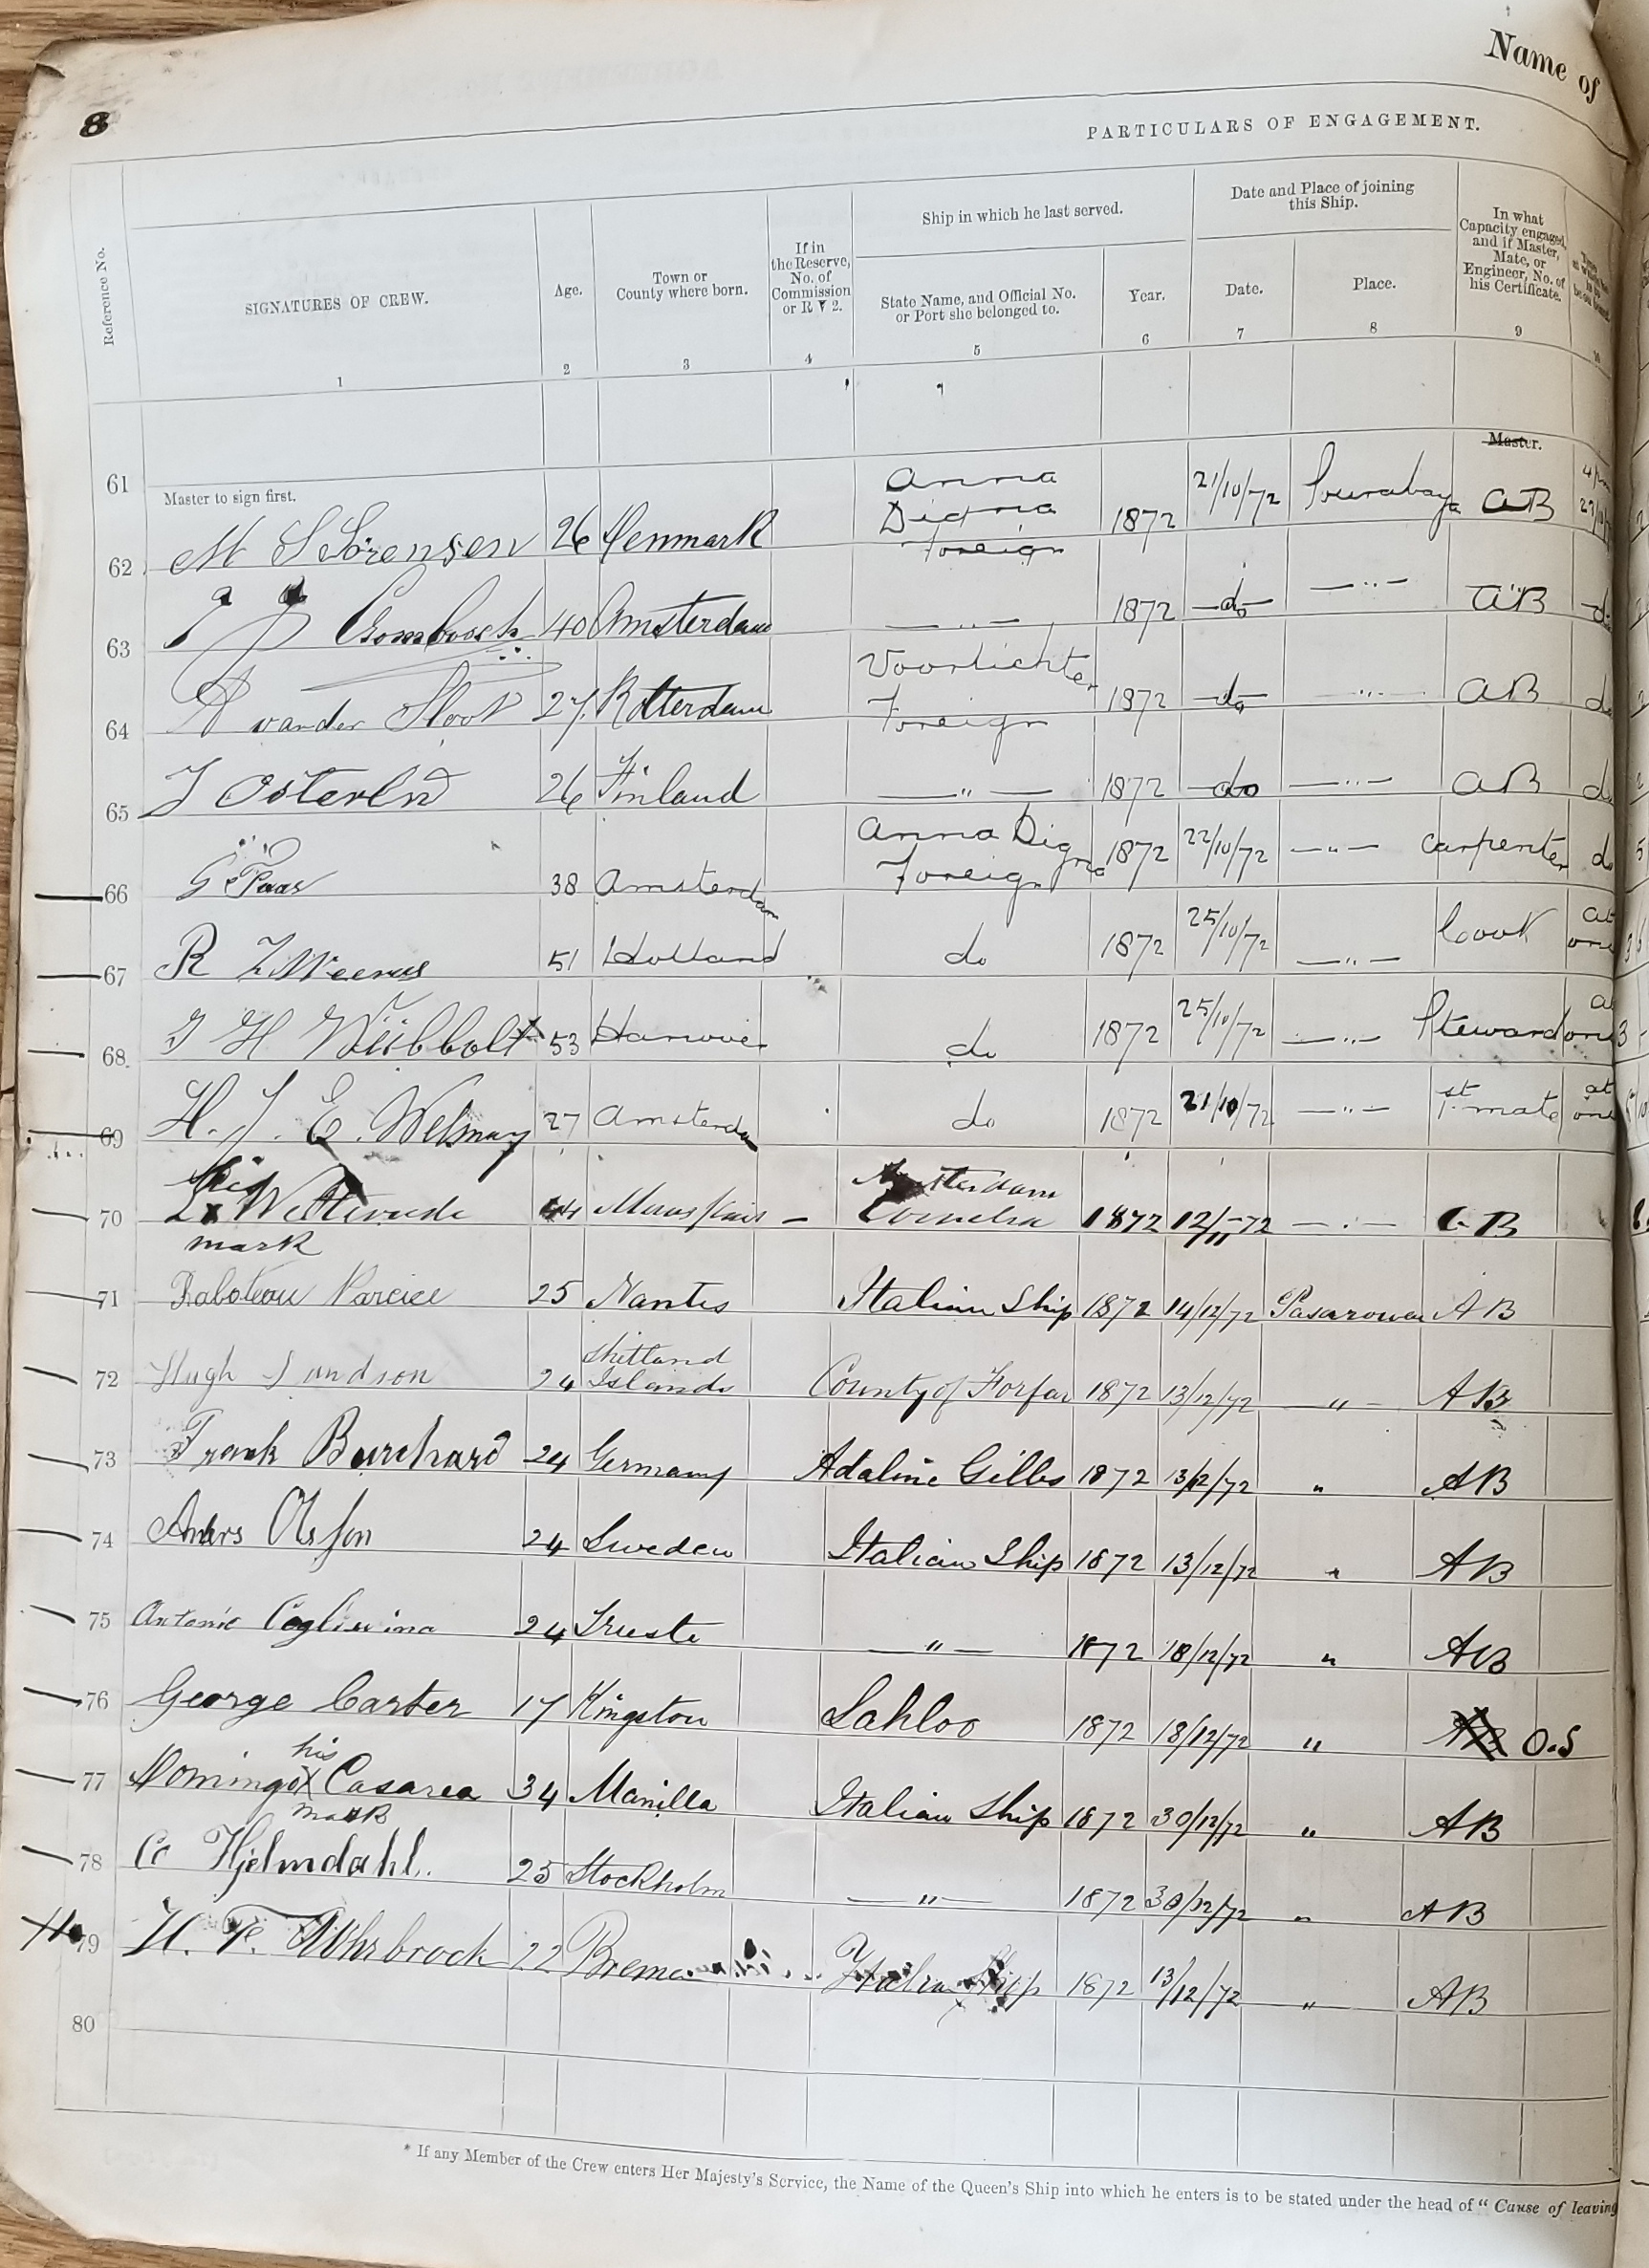 Name of
8
PARTICULARS OF ENGAGEMENT.
Reference No.
SIGNATURES OF CREW.
Age.
Town or
County where born.
If in
the Reserve,
No. of
Commission
or R V 2.
Ship in which he last served.
State Name, and Official No.
or Port she belonged to.
Year.
Date and Place of joining
this Ship.
Date.
Place.
In what
Capacity engaged,
and if Master,
Mate, or
Engineer, No. of
his Certificate.
1 2 3 4 5 6 7 8 9 10
Master.
61 Master to sign first.
M S Sörensen 26 Denmark Anna Digna Foreign 1872 21/10/72 Sourabaya AB
62
40 Amsterdam —"— 1872 do —"— AB do
63
A van der Sloot 27 Rotterdam Voorlichter Foreign 1872 do —"— AB do
64
J Osterlid 26 Finland —"— 1872 do —"— AB do
65
G Paar 38 Amsterdam Anna Digna Foreign 1872 22/10/72 —"— Carpenter do
66
R 51 Holland do 1872 25/10/72 —"— Cook at once
67
J H Wübbolt 53 Hanover do 1872 25/10/72 —"— Steward at once
68
H. J. E. 27 Amsterdam do 1872 21/10/72 —"— 1st mate at once
69
his
x 44 Amsterdam Cornelia 1872 12/11/72 —"— AB
70
mark
25 Nantes Italian Ship 1872 14/12/72 Pasarouan AB
71
Hugh 24 Shetland Islands County of Forfar 1872 13/12/72 —"— AB
72
Frank Burchard 24 Germany Adaline Gibbs 1872 13/12/72 " AB
73
Anders Olsson 24 Sweden Italian Ship 1872 13/12/72 " AB
74
Antonio 24 Trieste —"— 1872 18/12/72 " AB
75
George Carter 17 Kingston Lahloo 1872 18/12/72 " AB O.S
76
his
Domingo X Casarea 34 Manilla Italian Ship 1872 30/12/72 " AB
77
mark
C Hjelmdahl. 25 Stockholm —"— 1872 30/12/72 " AB
78
H. F. Wührbrock 22 Bremen Italian Ship 1872 13/12/72 " AB
79
80
* If any Member of the Crew enters Her Majesty's Service, the Name of the Queen's Ship into which he enters is to be stated under the head of " Cause of leaving